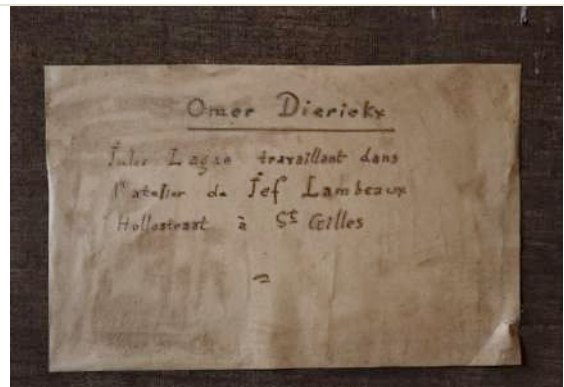 Omer Dierickx
Jules Lagae travaillant dans
l'atelier de Jef Lambeaux
Hollestraat à St Gilles